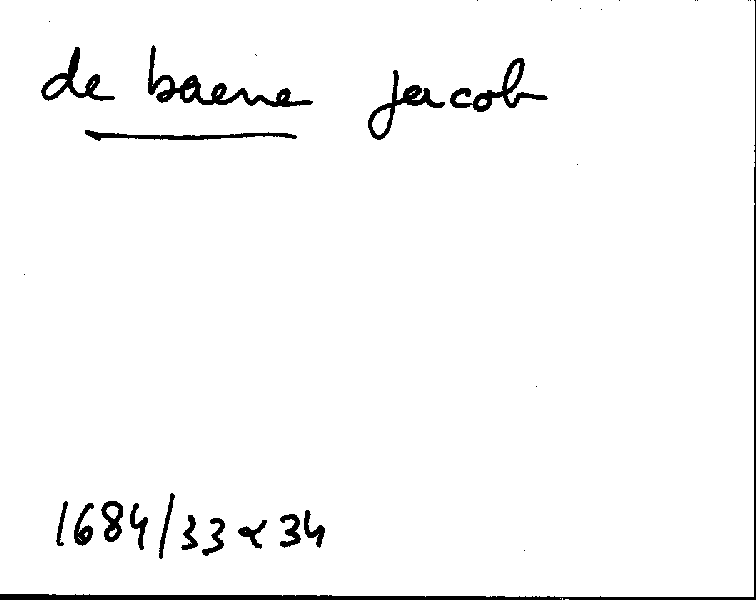 de baene Jacob
1684/33 & 34